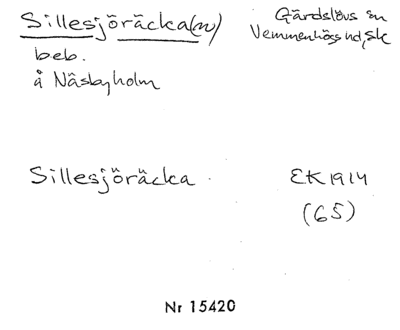 Sillesjöräcka(n)
Gärdslövs sn
Vemmenhögs hd, Sk
beb.
å Näsbyholm
Sillesjöräcka
EK 1914
(65)
Nr 15420